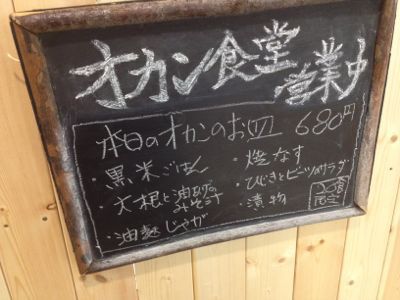 オカン食堂
営業中
本日のオカンのお皿 680円
・黒米ごはん
・大根と油あげの
みそ汁
・油麩じゃが
・焼なす
・ひじきとビーツのサラダ
・漬物
20食
限定